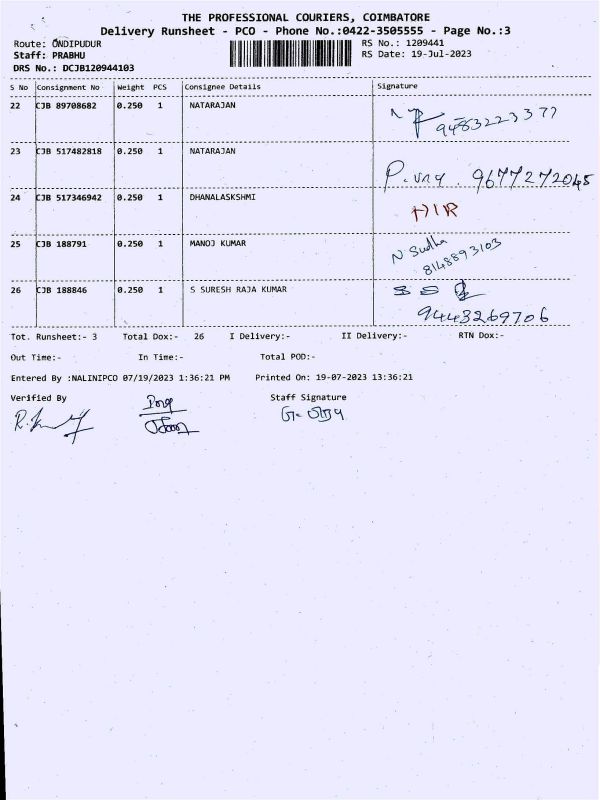 THE PROFESSIONAL COURIERS, COIMBATORE
Delivery Runsheet - PCO - Phone No.:0422-3505555 - Page No.:3
Route: ONDIPUDUR
RS No.: 1209441
Staff: PRABHU
RS Date: 19-Jul-2023
DRS No.: DCJB120944103
S No Consignment No Weight PCS Consignee Details Signature
22 CJB 89708682 0.250 1 NATARAJAN
9483223377
23 CJB 517482818 0.250 1 NATARAJAN
9677272045
24 CJB 517346942 0.250 1 DHANALASKSHMI
25 CJB 188791 0.250 1 MANOJ KUMAR N Sudha
8148893103
26 CJB 188846 0.250 1 S SURESH RAJA KUMAR
9443269706
Tot. Runsheet:- 3 Total Dox:- 26 I Delivery:- II Delivery:- RTN Dox:-
Out Time:- In Time:- Total POD:-
Entered By :NALINIPCO 07/19/2023 1:36:21 PM Printed On: 19-07-2023 13:36:21
Verified By Staff Signature